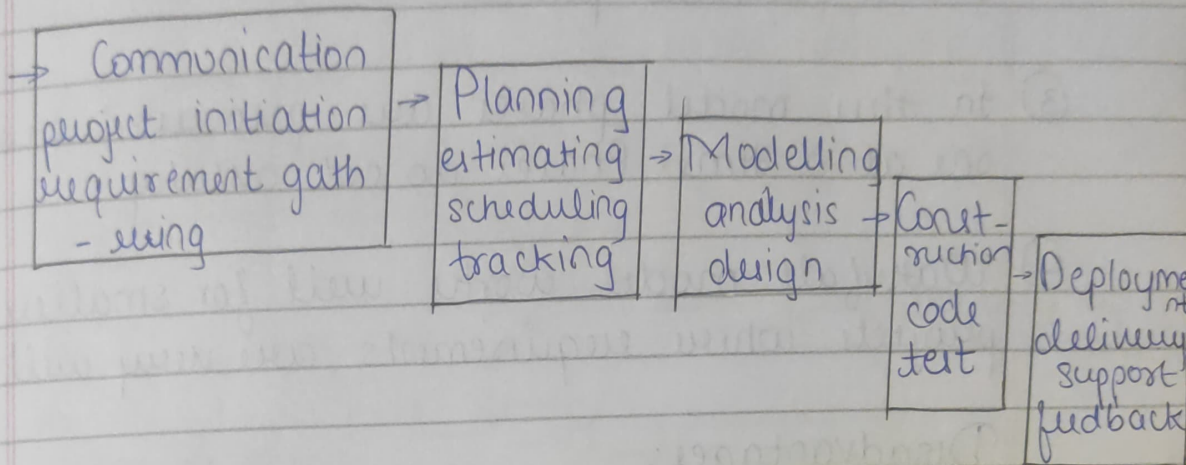 Communication
project initiation
requirement gath
- ering
Planning
estimating
scheduling
tracking
Modelling
analysis
design
Const-
ruction
code
test
Deployme
nt
delivery
support
feedback